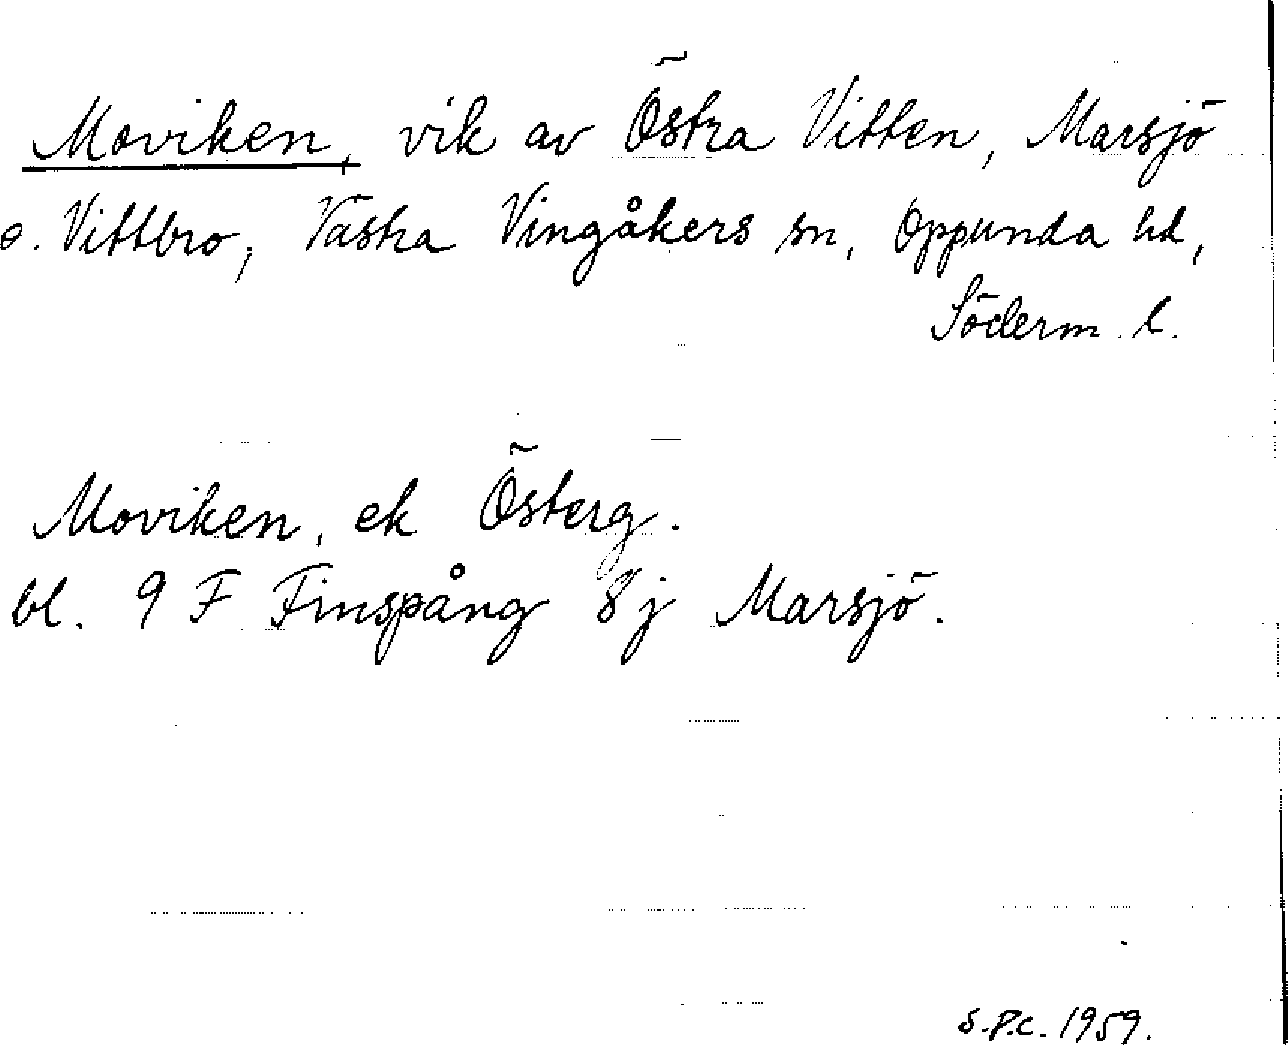 Moviken, vik av Östra Vitten, Marsjö
o. Vittbro, Västra Vingåkers sn, Oppunda hd,
Söderm. l.
Moviken, ek Österg.
bl. 9 F Finspång 8j Marsjö.
S.P.C. 1959.